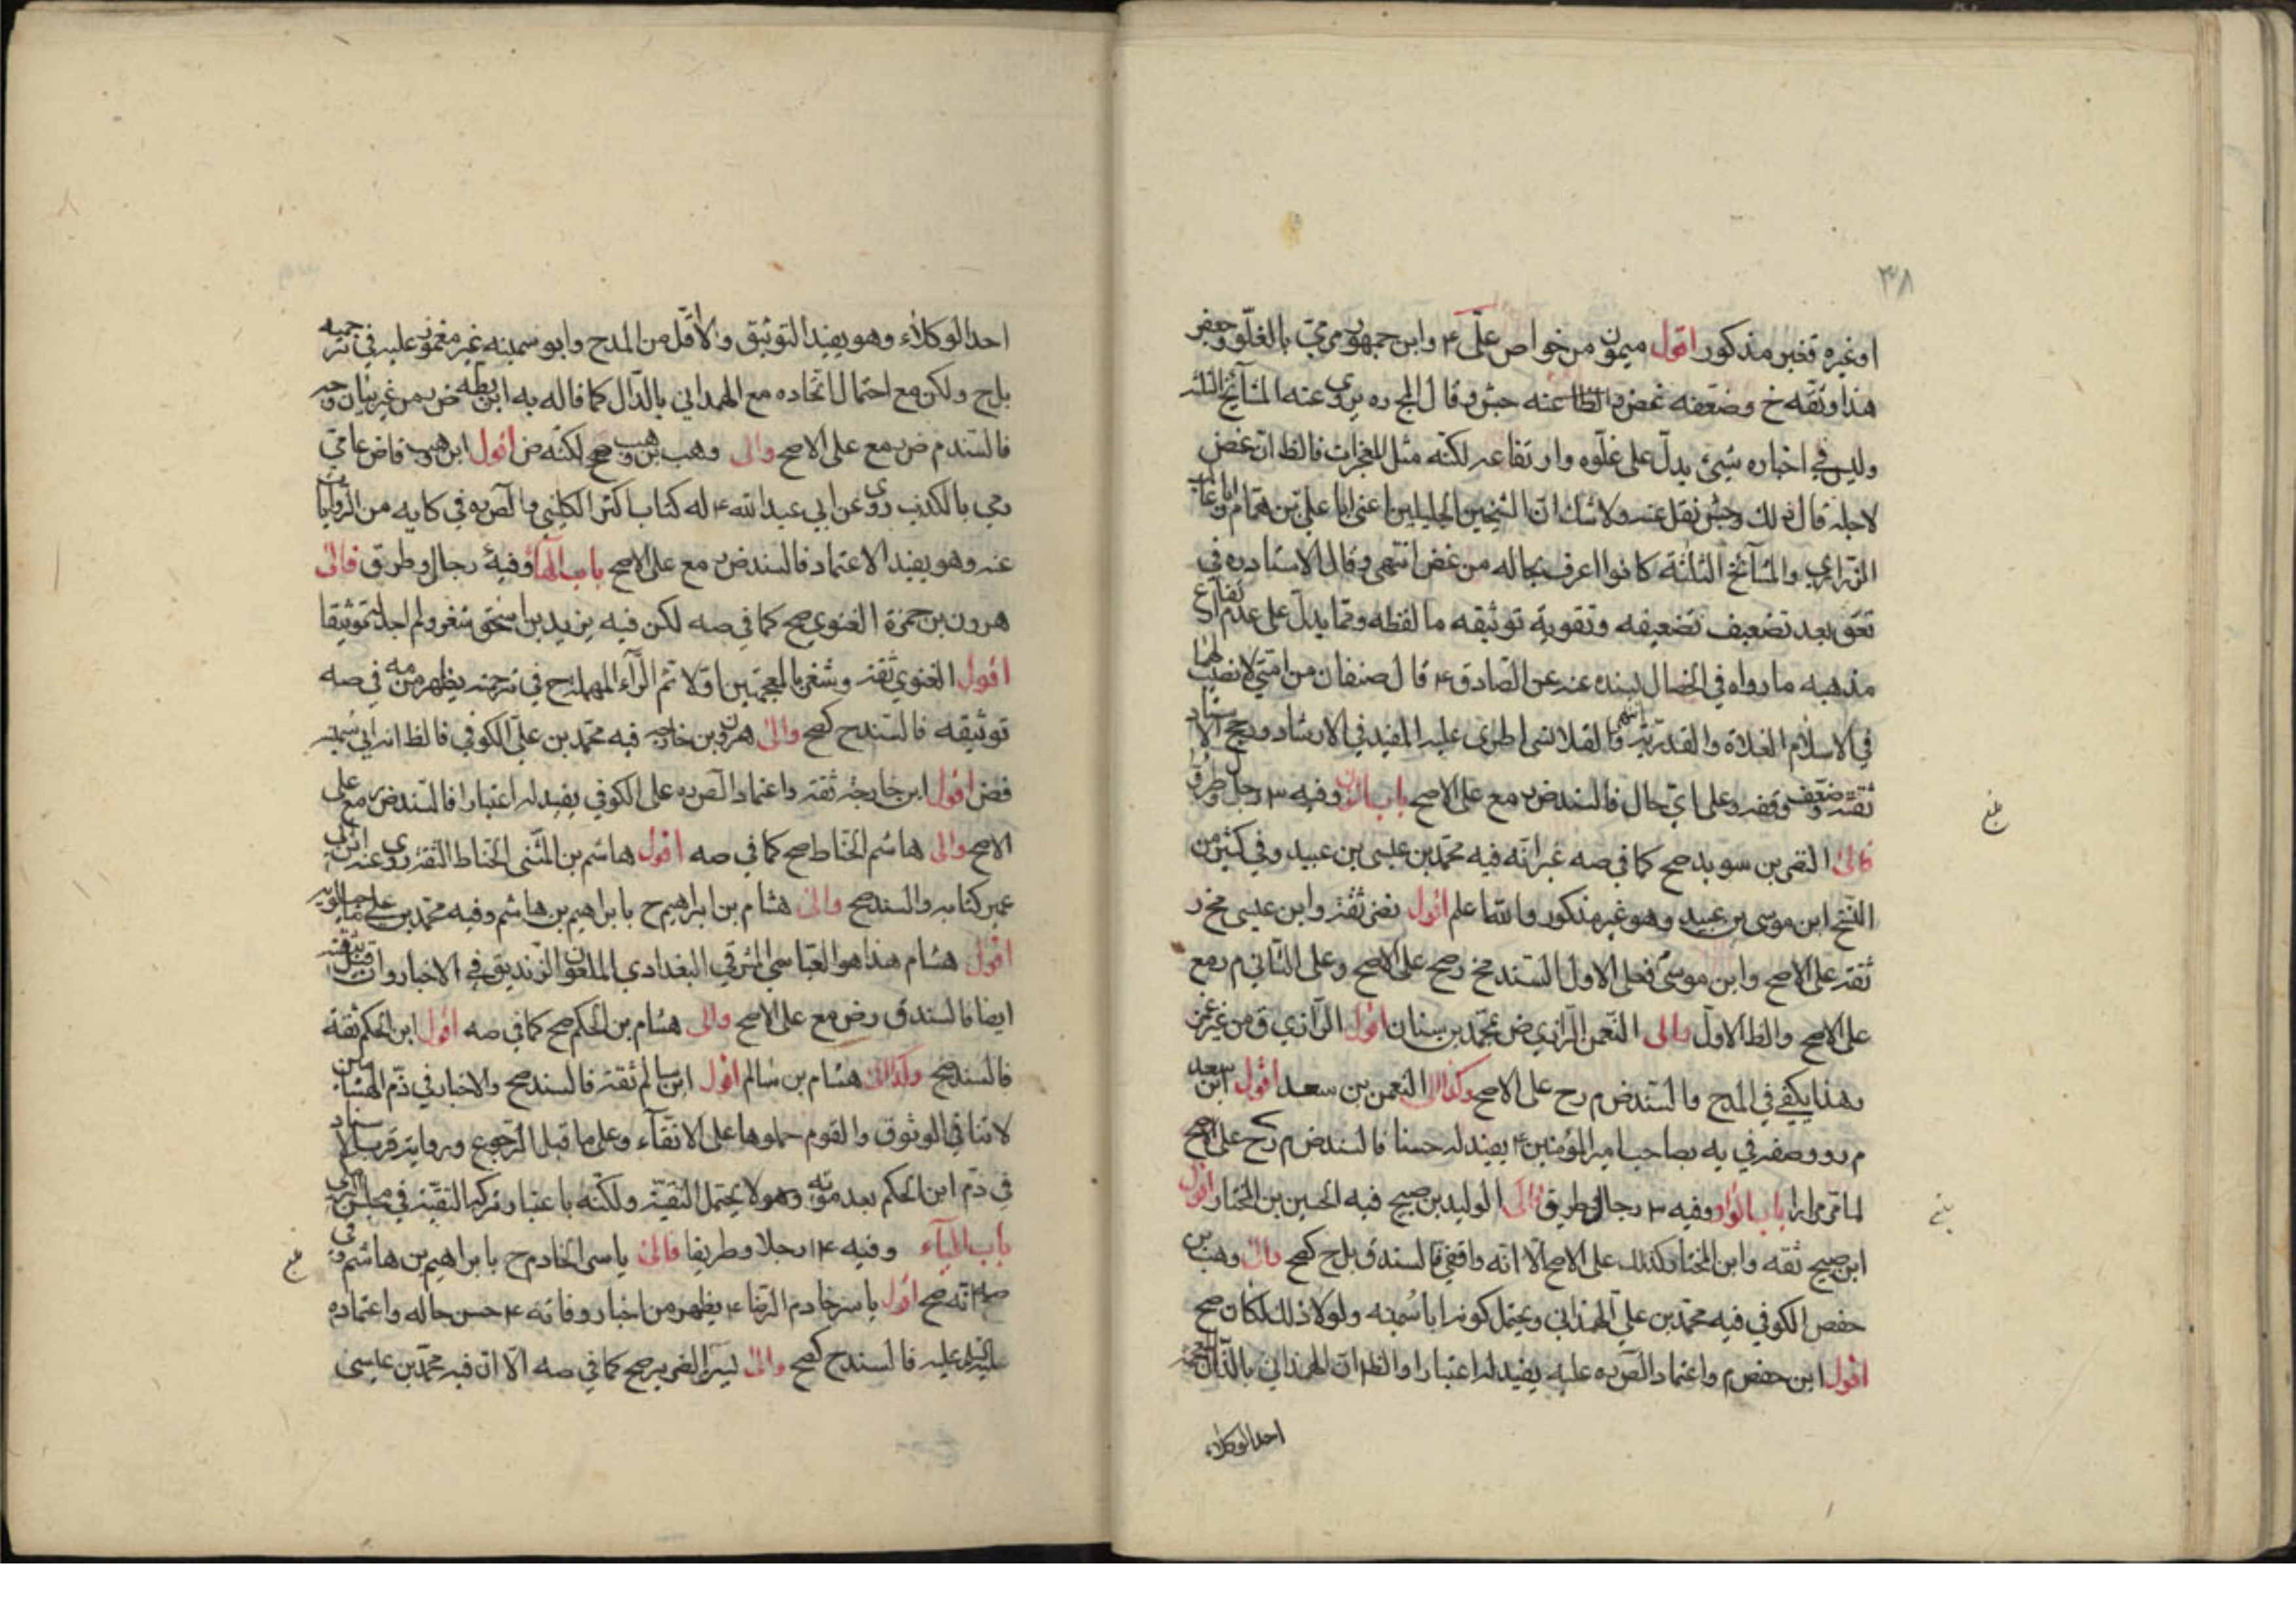 ٣٨
اوغيره فغير مذكور اقول ميمون من خواص علي ٤ وابن جمهور رمي بالغلو وجعفر
هذا وثقه خ وضعفه غض و عنه جش وقال المج ره يروي عنه المشآيخ الثلثة
وليس في اخباره شيئ يدل على غلوه وارتفاعه لكنه مثل المعجزات فالظ ان غض
لاجله قال ذلك وجش نقل عنه ولا شك ان الشيخين الجليلين اعني ابا علي بن همام وابا غالب
الزراري والمشآئخ الثلثة كانوا اعرف بحاله من غض انتهى وقال الاستاد ره في
تعق بعد تضعيف تضعيفه وتقوية توثيقه ما لفظه ومما يدل على عدم ارتفاع
مذهبه ما رواه في الخصال بسنده عنه عن الصادق ٤ قال صنفان من امتي لا نصيب لهما
في الاسلام الغلاة والقدرية
ثقة وعلى اي حال فالسند ض مع على الاصح باب النون وفيه ٣ رجل وطرق
فالى النضر بن سويد صح كما في صه غير انه فيه محمد بن عيسى بن عبيد وفي كثير من
النسخ ابن موسى بن عبيد وهو غير مذكور والله اعلم اقول نضر ثقة وابن عيسى مخ ر
ثقة على الاصح وابن موسى فعلى الاول السند مخ رصح على الاصح وعلى الثاني م رمع
على الاصح والظ الاول والى النعمن الرازي ض بمحمد بن سنان اقول الرازي ق من غير غمز
وهذا يكفي في المدح فالسند ض م رح على الاصح وكذا الى النعمن بن سعد اقول ابن سعد
م رو وصفه في يه بصاحب امير المؤمنين ٤ يفيد له حسنا فالسند ض م رح على الاصح
لما مر مرارا باب الواو وفيه ٣ رجال وطريق فالى الوليد بن صبيح فيه الحسين بن المختار اقول
ابن صبيح ثقه وابن المختار كذلك على الاصح الا انه واقفي فالسند ق بل ح كصح والى وهب بن
حفص الكوفي فيه محمد بن علي الهمذاني ويحتمل كونه ابا سمينه ولولا ذلك لكان صح
اقول ابن حفص م واعتماد الص ره عليه يفيد له اعتبارا والظ ان الهمذاني بالذال المعجمة
احد الوكلاء
بلغ
بلغ
احد الوكلاء وهو يفيد التوثيق ولا اقل من المدح وابو سمينه غير مغموز عليه في ترجمته
بل ح ولكن مع احتمال اتحاده مع الهمداني بالدال كما قاله به ابن بطه ض من غير بيان وجه
فالسند م ض مع على الاصح والى وهب بن وهب صح لكنه ض اقول ابن وهب قاض عامي
رمي بالكذب روى عن ابي عبد الله ٤ له كتاب اكثر الكليني والص ره في كتابه من الروايات
عنه وهو يفيد الاعتماد فالسند ض مع على الاصح باب الهآء وفيه رجال وطرق فالى
هرون بن حمزة الغنوي صح كما في صه لكن فيه يزيد بن اسحق شغر ولم اجد له توثيقا
اقول الغنوي ثقة وشغر بالمعجمتين اولا ثم الرآء المهملة ح في ترجمته يظهر من مه في صه
توثيقه فالسند ح كصح والى هرون بن خارجه فيه محمد بن علي الكوفي فالظ انه ابي سمينه
فض اقول ابن خارجة ثقة واعتماد الص ره على الكوفي يفيد له اعتبارا فالسند ض مع على
الاصح والى هاشم الحناط صح كما في صه اقول هاشم بن المثنى الحناط الثقة روى عنه ابن ابي
عمير كتابه والسند صح والى هشام بن ابراهيم ح بابراهيم بن هاشم وفيه محمد بن علي ماجيلويه
اقول هشام هذا هو العباسي المشرقي البغدادي الملعون الزنديق في الاخبار وان قيل بثقته
ايضا فالسند ق رض مع على الاصح والى هشام بن الحكم صح كما في صه اقول ابن الحكم ثقة
فالسند صح وكذا الى هشام بن سالم اقول ابن سالم ثقة فالسند صح والاخبار في ذم الهشامين
لا تنافي الوثوق والقوم حملوها على الاتقآء وعلى ما قبل الرجوع ورواية قرب الاسناد
في ذم ابن الحكم بعد موته وهو لا يحتمل التقية ولكنه باعتبار تركه التقية في مجلس
باب اليآء وفيه ١٤ رجلا وطريقا فالى ياسر الخادم ح بابراهيم بن هاشم وفي
صه انه صح اقول ياسر خادم الرضا ٤ يظهر من اخبار وفاته ٤ حسن حاله واعتماده
عليه فالسند ح كصح والى ياسين الضرير صح كما في صه الا ان فيه محمد بن عيسى
بلغ